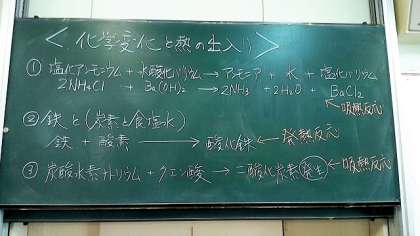 ＜化学変化と熱の出入り＞
① 塩化アンモニウム + 水酸化バリウム → アンモニア + 水 + 塩化バリウム
2NH4Cl + Ba(OH)2 → 2NH3 + 2H2O + BaCl2
← 吸熱反応
② 鉄と(炭素と食塩水)
鉄 + 酸素 → 酸化鉄 ← 発熱反応
③ 炭酸水素ナトリウム + クエン酸 → 二酸化炭素発生 ← 吸熱反応